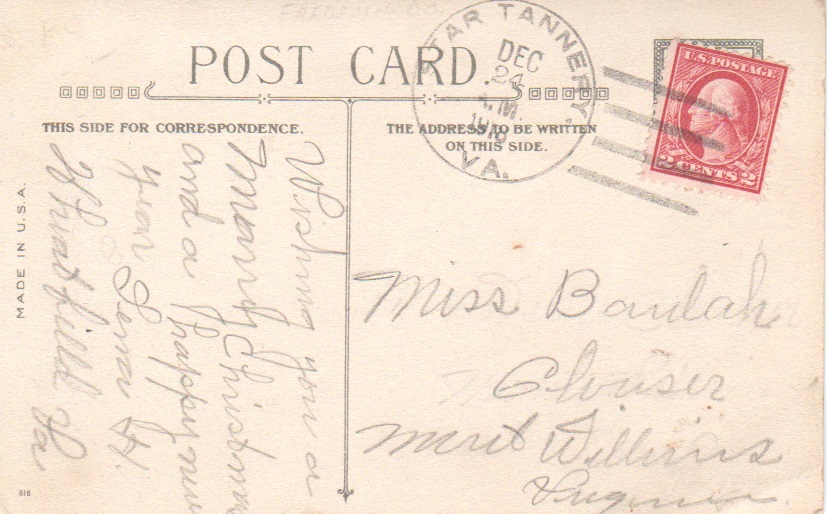 FREDERICK CO.
POST CARD.
STAR TANNERY,
DEC
24
A.M.
VA.
U.S. POSTAGE
2 CENTS 2
THIS SIDE FOR CORRESPONDENCE.
THE ADDRESS TO BE WRITTEN
ON THIS SIDE.
Wishing you a
marry Christmas
and a happy new
year Lena H.
Wheatfield Va
Miss Baulah
Clouser
Merit Williams
Virginia
MADE IN U.S.A.
818